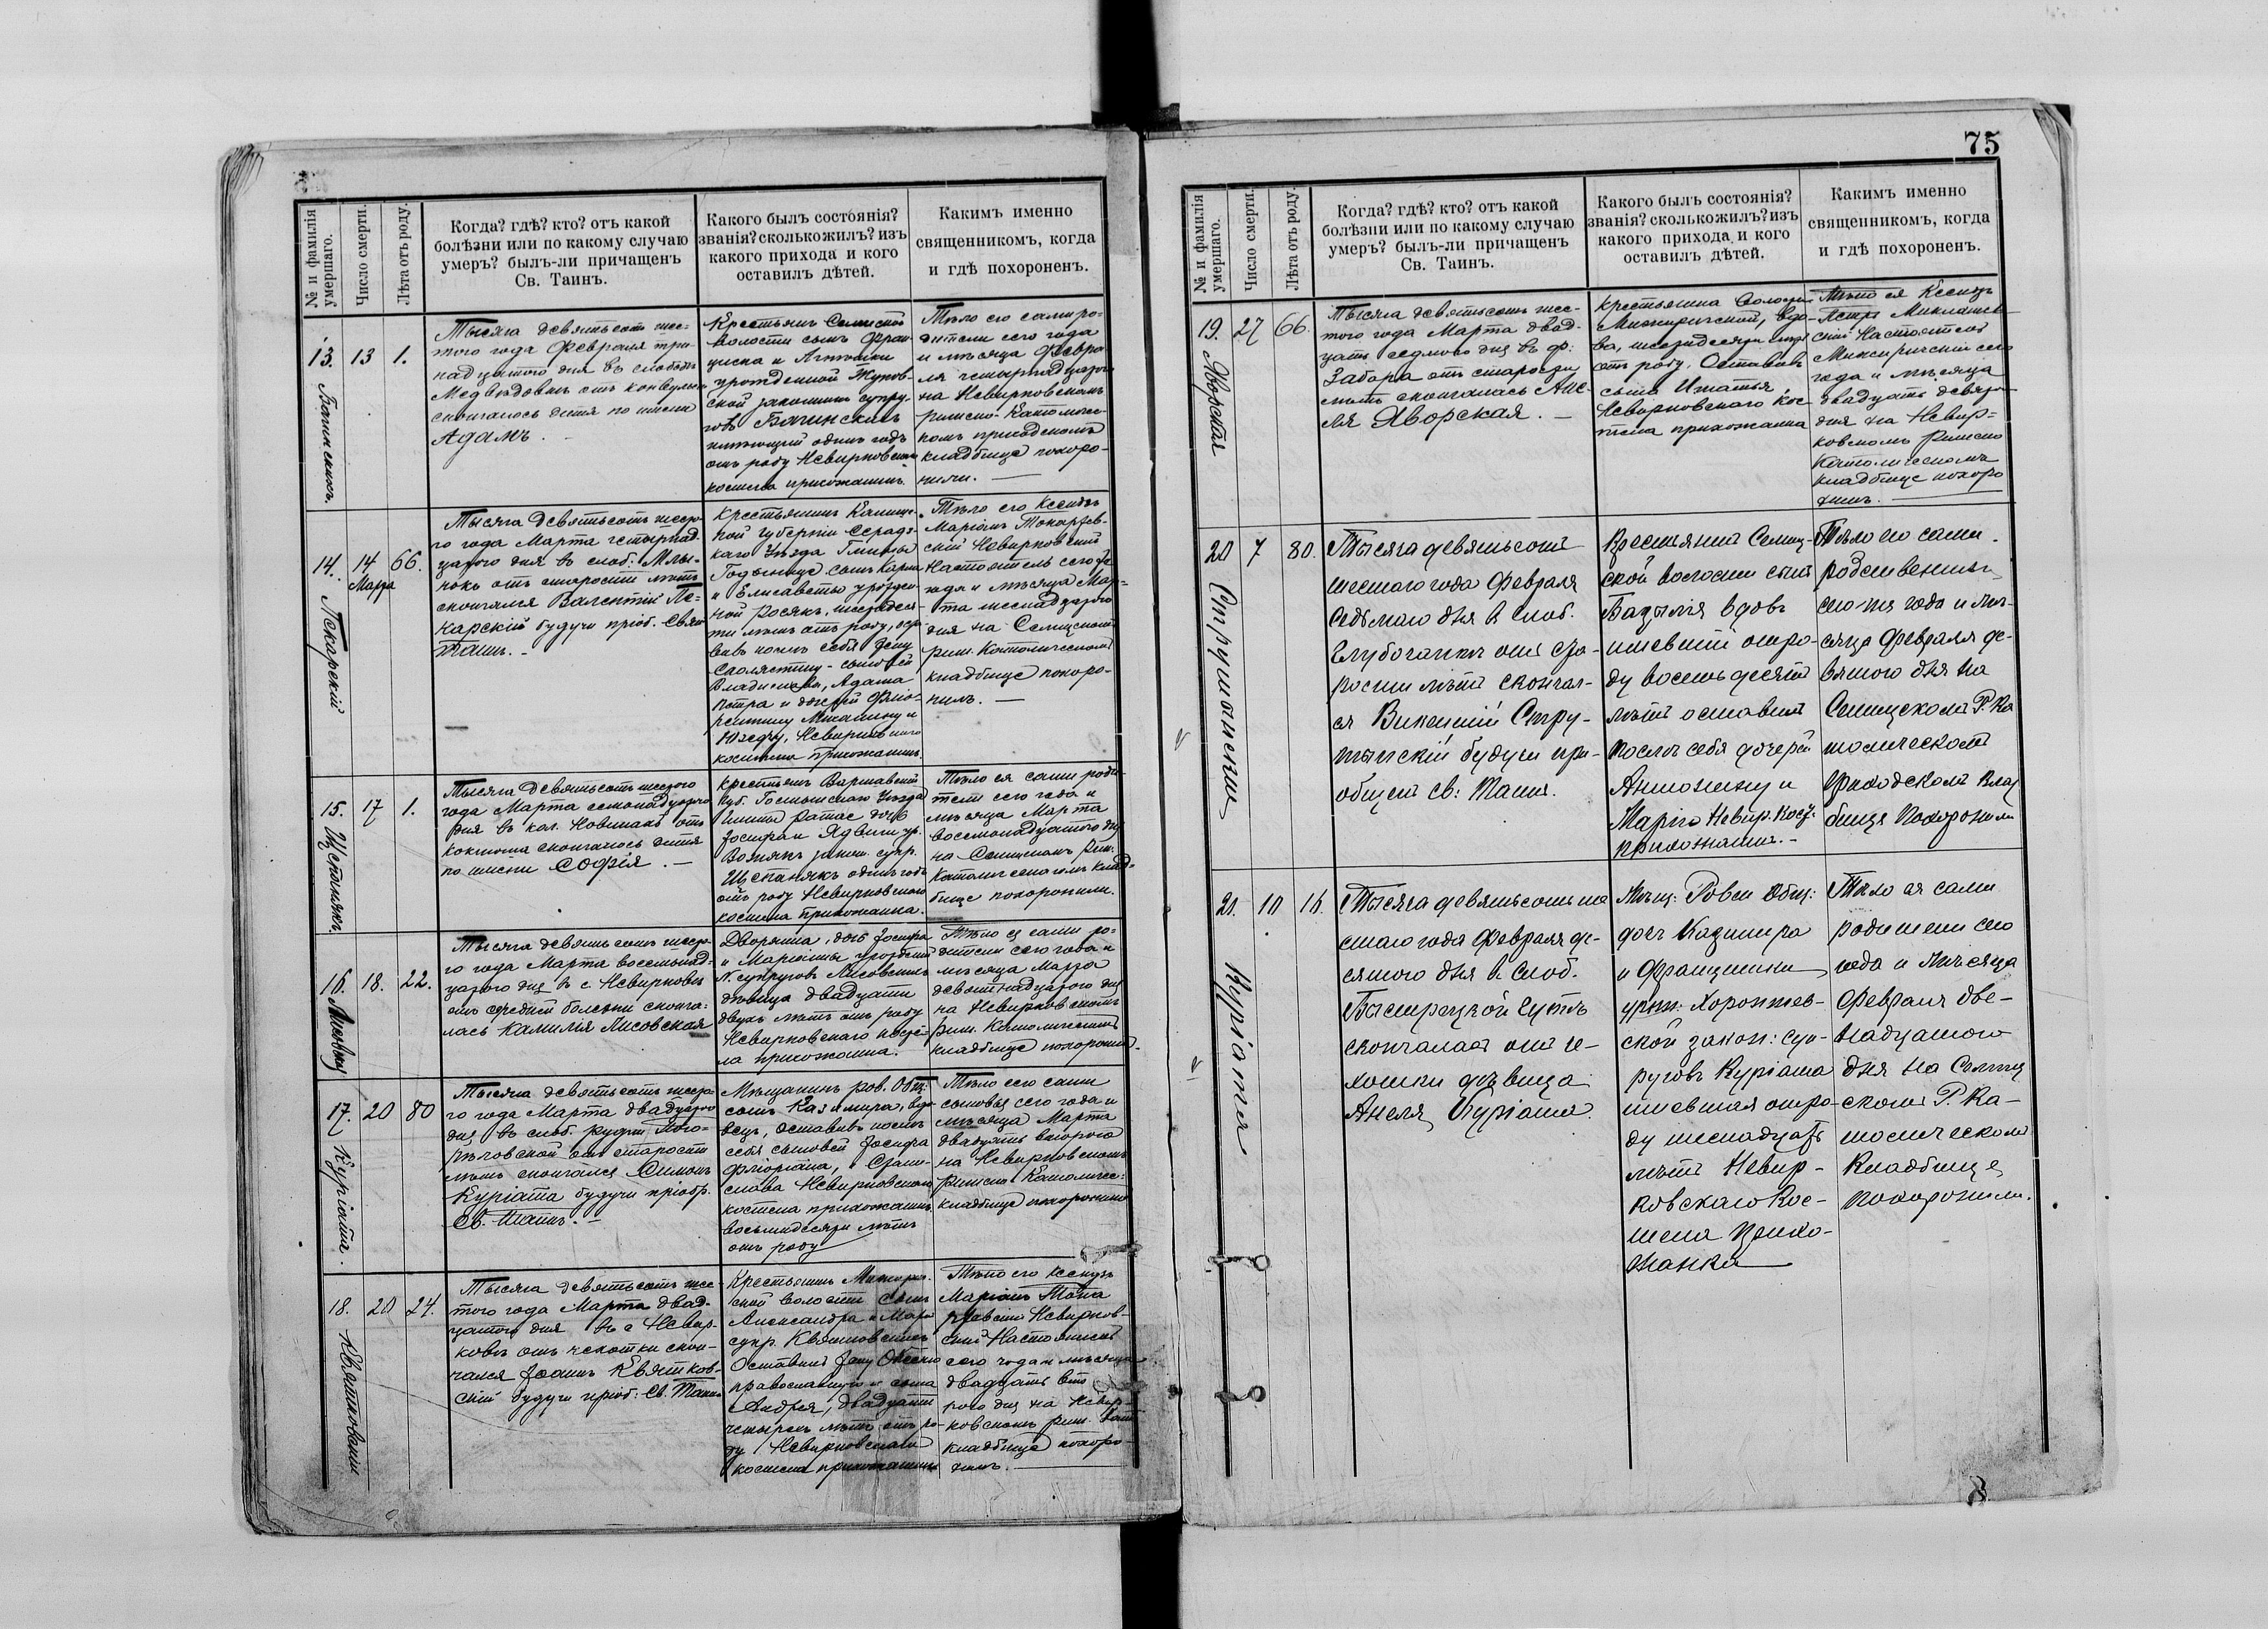 № и фамилія умершаго.
Число смерти.
Лѣта отъ роду.
Когда? гдѣ? кто? отъ какой
болѣзни или по какому случаю
умеръ? былъ-ли причащенъ
Св. Таинъ.
Какого былъ состоянія?
званія? сколько жилъ? изъ
какого прихода и кого
оставилъ дѣтей.
Какимъ именно
священникомъ, когда
и гдѣ похороненъ.
13.
13
1.
Тысяча девятьсотъ шес-
того года Февраля три-
надцатого дня въ слободѣ
отъ конвульсіи
скончалось дитя по имени
Адамъ.
волости сынъ Фран-
циска и
урожденной Жуков-
ской законныхъ супру-
говъ Бачинскихъ
имѣющій одинъ годъ
отъ роду Невирковскаго
костела прихожанинъ.
Тѣло его сами ро-
дители сего года
и мѣсяца Февра-
ля четырнадцатого
на Невирковскомъ
римско-Католичес-
комъ приходскомъ
кладбище похоро-
нили.
14.
Пекарскій
14
Марта
66.
Тысяча девятьсотъ шесто-
го года Марта четырнад-
цатого дня въ слоб. Млы-
нокъ отъ старости лѣтъ
скончался Валентій Пе-
карскій будучи пріоб. Свят.
Таинъ.
Крестьянинъ
кой Губерніи Серадз-
каго Уѣзда Гмины
сынъ
и Елисаветы урожден-
ной Росякъ, шестьдеся-
ти лѣтъ отъ роду, оста-
вивъ послѣ себя жену
сыновей
Владислава, Адама
Петра и дочерей Фло-
рентину Михалину и
Юзефу, Невирковскаго
костела прихожанинъ.
Тѣло его Ксендзъ
Маріанъ Токаржев-
скій Невирковскій
Настоятель сего
года и мѣсяца Мар-
та шеснадцатого
дня на Селищскомъ
рим. Католическомъ
кладбище похоро-
нилъ.
15.
Щепанякъ
17
1.
Тысяча девятьсотъ шестого
года Марта семнадцатого
дня въ кол. отъ
коклюша скончалось дитя
по имени Софія.
Крестьянъ Варшавской
Губ. Уѣзда
гмины Ратае дочь
Іосифа и Ядвиги ур.
закон. супр.
Щепанякъ одинъ годъ
отъ роду Невирковскаго
костела прихожанка.
Тѣло ея сами роди-
тели сего года и
мѣсяца Марта
восемнадцатого дня
на Селищскомъ Рим.
Католическомъ клад-
бище похоронили.
16.
18.
22.
Тысяча девятьсотъ шесто-
го года Марта восемнад-
цатого дня въ с. Невирковѣ
отъ болѣзни сконча-
лась Камилія Лисовская
Дворянка, дочь Іосифа
и Маріанны урожденной
N. супруговъ Лисовскихъ
дѣвица двадцати
двухъ лѣтъ отъ роду
Невирковскаго косте-
ла прихожанка.
Тѣло ея сами ро-
дители сего года и
мѣсяца Марта
девятнадцатого дня
на Невирковскомъ
Рим. Католическомъ
кладбище похоронили.
17.
Куріата.
20
80
Тысяча девятьсотъ шесто-
го года Марта двадцатого
дня въ слоб.
отъ старости
лѣтъ скончался Симонъ
Куріата будучи пріобр.
Св. Таинъ.
Мѣщанинъ ров. Общ:
сынъ Казимира, вдо-
вецъ, оставивъ послѣ
себя сыновей Іосифа
Флоріана, и Стани-
слава Невирковскаго
костела прихожанинъ
восьмидесяти лѣтъ
отъ роду
Тѣло его сами
сыновья сего года и
мѣсяца Марта
двадцать второго
на Невирковскомъ
Римско Католичес:
кладбище похоронили
18.
20
24.
Тысяча девятьсотъ шес-
того года Марта двад-
цатого дня въ с Невир-
ковѣ отъ чахотки скон-
чался Іоаннъ Квятков-
скій будучи пріоб: Св. Таинъ
Крестьянинъ
ской волости сынъ
Александра и
супр. Квятковскихъ
Оставилъ жену
православную и сына
Андрея, двадцати
четырехъ лѣтъ отъ ро-
ду Невирковскаго
костела прихожанинъ
Тѣло его Ксендзъ
Маріанъ Тока-
ржевскій Невирков-
скій Настоятель
сего года и мѣсяца
двадцать вто-
рого дня на Невир-
ковскомъ Рим. Кат.
кладбище похоро-
нилъ.
75
№ и фамилія умершаго.
Число смерти.
Лѣта отъ роду.
Когда? гдѣ? кто? отъ какой
болѣзни или по какому случаю
умеръ? былъ-ли причащенъ
Св. Таинъ.
Какого былъ состоянія?
званія? сколько жилъ? изъ
какого прихода и кого
оставилъ дѣтей.
Какимъ именно
священникомъ, когда
и гдѣ похороненъ.
19.
Яворская
27
66.
Тысяча девятьсотъ шес-
того года Марта двад-
цать седьмого дня въ ф:
Забара отъ старости
лѣтъ скончалась Ане-
ля Яворская.
Крестьянка
Межиричской, вдо-
ва, шестидесяти шести
отъ роду. Оставивъ
сына Игнатія
Невирковскаго кос-
тела прихожанка
Тѣло ея Ксендзъ
Петръ
скій Настоятель
Межиричскій сего
года и мѣсяца
двадцать девятого
дня на Невир-
ковскомъ Римско
Католическомъ
кладбище похоро
нилъ.
20
Струминскій
7
80.
Тысяча девятьсотъ
шестаго года Февраля
седьмаго дня въ слоб.
отъ ста-
рости лѣтъ скончал-
ся Викентій Стру-
минскій будучи прі-
общенъ св: Таинъ.
Крестьянинъ Селищ-
ской волости сынъ
Базылія вдовъ
имѣвшій отро-
ду восемьдесятъ
лѣтъ оставилъ
послѣ себя дочерей
Антонину и
Марію Невир. Кост.
прихожанинъ.
Тѣло его сами
родственники
сего-же года и мѣ-
сяца Февраля де-
вятого дня на
Селищскомъ Р. Ка
толическомъ
приходскомъ клад
бище Похоронили
21.
Куріата
10
16.
Тысяча девятьсотъ ше
стаго года Февраля де-
сятого дня въ слоб.
скончалась отъ ча-
хотки дѣвица
Анеля Куріата
Мѣщ: Ровен Общ:
дочь Казимира
и Францишки
урож:
ской закон: суп-
руговъ Куріата
имѣвшая отро-
ду шеснадцать
лѣтъ Невир-
ковскаго Кос-
тела Прихо-
жанка
Тѣло ея сами
родители сего
года и мѣсяца
Февраля две-
надцатого
дня на Селищ
скомъ Р. Ка-
толическомъ
Кладбище
похоронили.